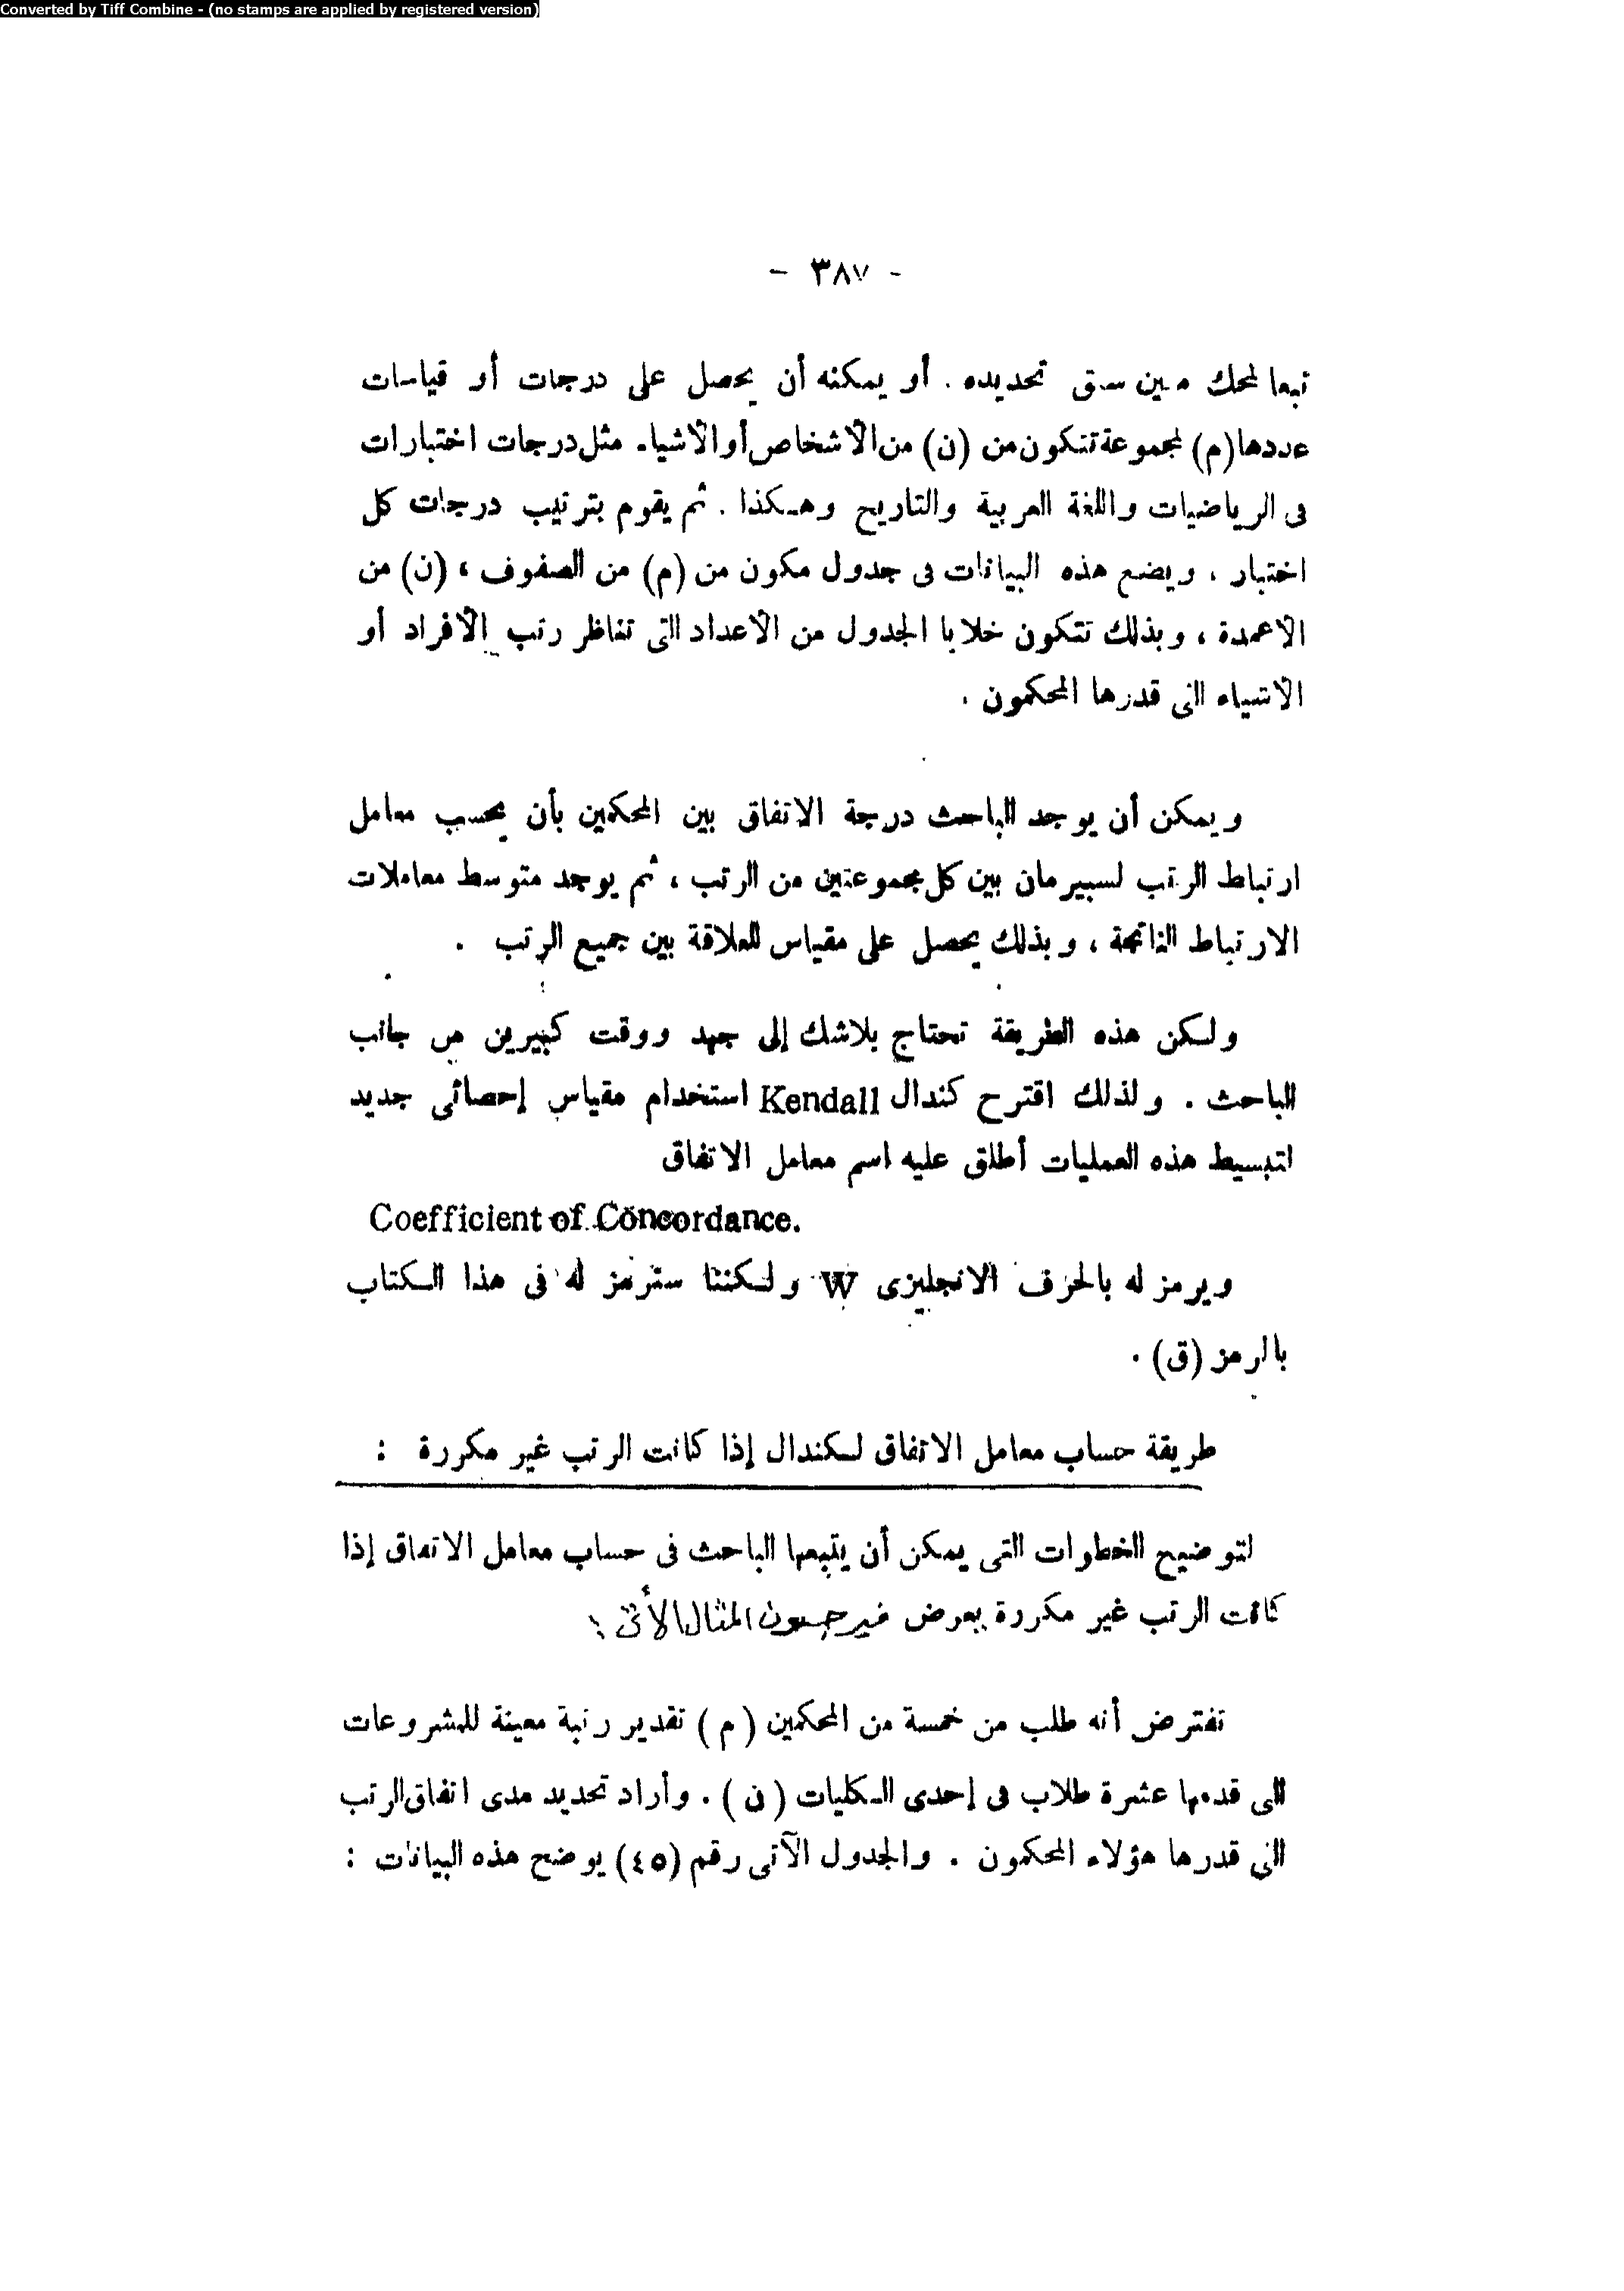 Converted by Tiff Combine - (no stamps are applied by registered version)
- ٣٨٧ -
تبعا لمحك معين سبق تحديده . أو يمكنه أن يحصل على درجات أو قياسات
عددها (م) لمجموعة تتكون من (ن) من الأشخاص أو الأشياء مثل درجات اختبارات
فى الرياضيات واللغة العربية والتاريخ وهكذا . ثم يقوم بترتيب درجات كل
اختبار ، ويضع هذه البيانات فى جدول مكون من (م) من الصفوف ، (ن) من
الاعمدة ، وبذلك تتكون خلايا الجدول من الأعداد التى تناظر رتب الأفراد أو
الاشياء التى قدرها المحكمون .
ويمكن أن يوجد الباحث درجة الاتفاق بين المحكمين بأن يحسب معامل
ارتباط الرتب لسبيرمان بين كل مجموعتين من الرتب ، ثم يوجد متوسط معاملات
الارتباط الناتجة ، وبذلك يحصل على مقياس للعلاقة بين جميع الرتب .
ولكن هذه الطريقة تحتاج بلاشك إلى جهد ووقت كبيرين من جانب
الباحث . ولذلك اقترح كندال Kendall استخدام مقياس إحصائى جديد
لتبسيط هذه العمليات أطلق عليه اسم معامل الاتفاق
Coefficient of Concordance.
ويرمز له بالحرف الانجليزى W ولكننا سنرمز له فى هذا الكتاب
بالرمز (ق) .
طريقة حساب معامل الاتفاق لكندال إذا كانت الرتب غير مكررة :
لتوضيح الخطوات التى يمكن أن يتبعها الباحث فى حساب معامل الاتفاق إذا
كانت الرتب غير مكررة يعرض فيرجسون المثال الأتى :
نفترض أنه طلب من خمسة من المحكمين (م) تقدير رتبة معينة للمشروعات
التى قدمها عشرة طلاب فى إحدى الكليات (ن) . وأراد تحديد مدى اتفاق الرتب
التى قدرها هؤلاء المحكمون . والجدول الآتى رقم (٤٥) يوضح هذه البيانات :